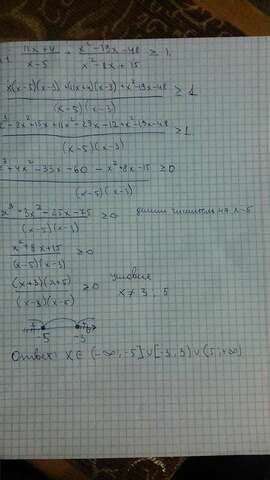 11x+4/x-5 + x²-19x-48/x²-8x+15 ≥ 1.
x(x-5)(x-3)+(11x+4)(x-3)+x²-19x-48/(x-5)(x-3) ≥ 1
-8x²+15x+11x²-29x-12+x²-19x-48/(x-5)(x-3) ≥ 1
+4x²-33x-60-x²+8x-15/(x-5)(x-3) ≥ 0
x³+3x²-25x-75/(x-5)(x-3) ≥ 0 делим числитель на x-5
x²+8x+15/(x-5)(x-3) ≥ 0
(x+3)(x+5)/(x-3)(x-5) ≥ 0 условие
x ≠ 3; 5
-5 -3
Ответ: X ∈ (-∞; -5] ∪ [-3; 3) ∪ (5; +∞)